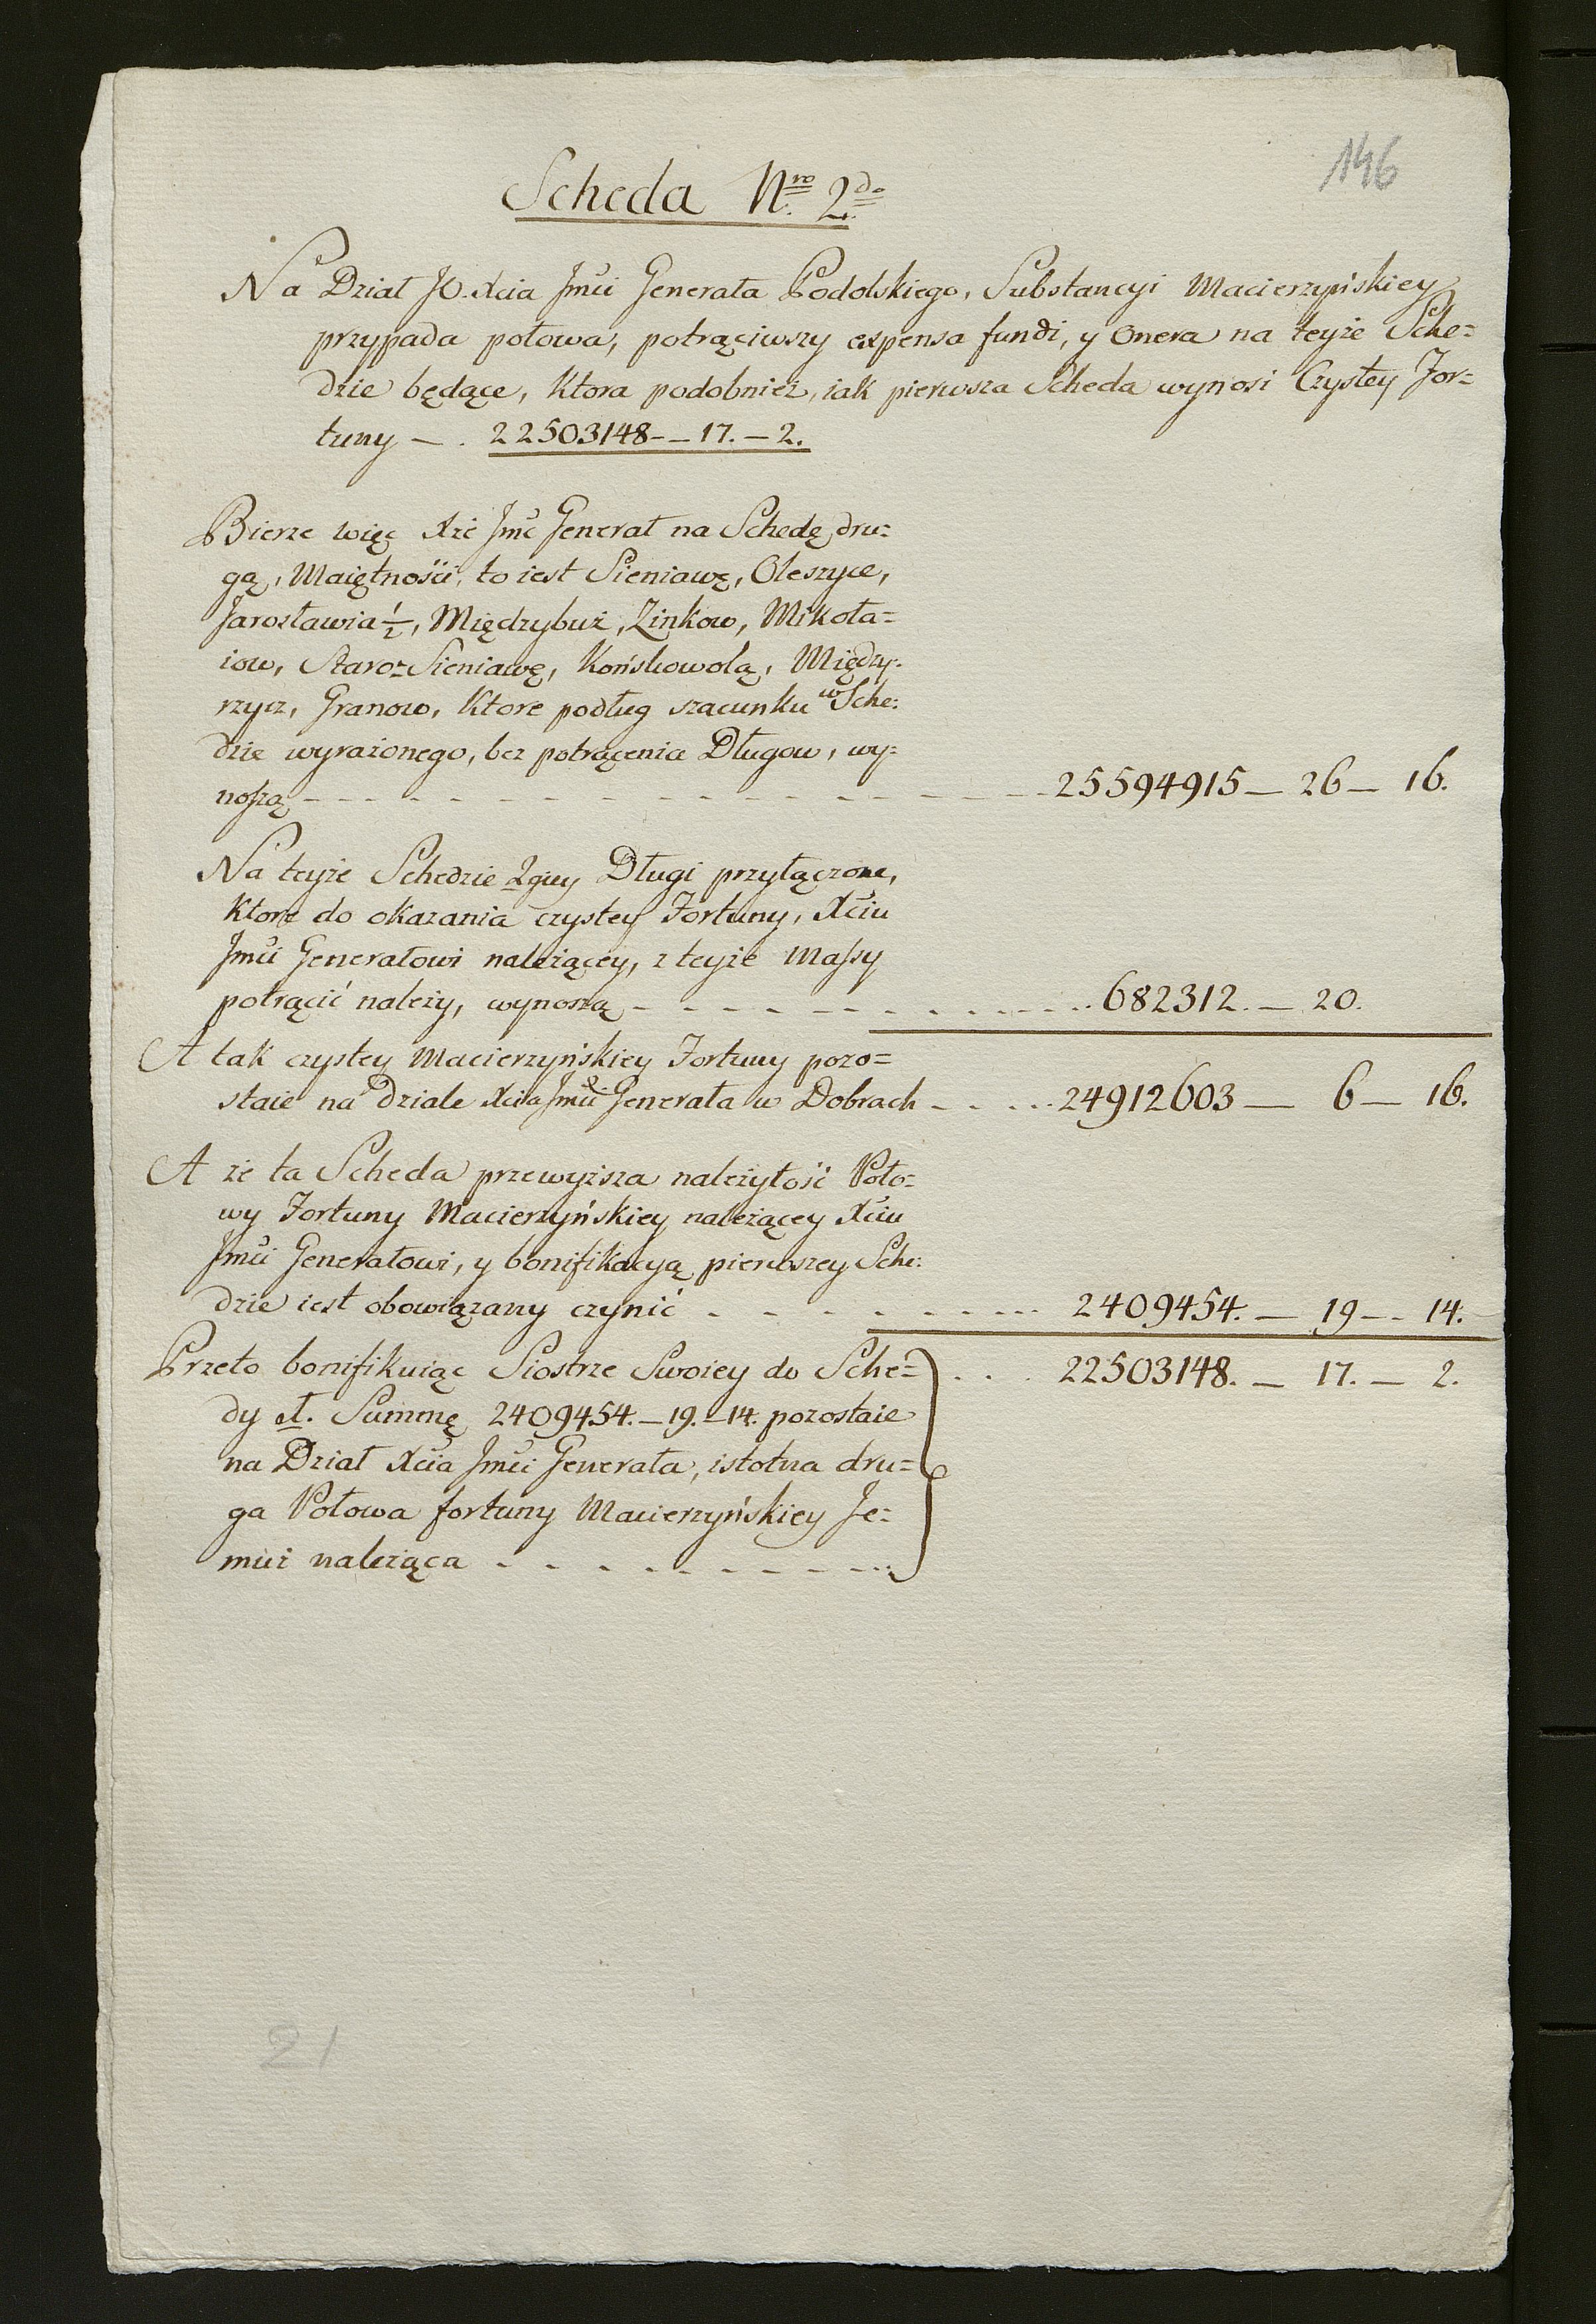 146
Scheda Nro. 2da.
Na Dział JO. Xcia Jmci Generała Podolskiego, Substancyi Macierzyńskiey
przypada połowa, potrąciwszy expensa fundi, y onera na teyże Sche=
dzie będące, Ktora podobnież, iak pierwsza Scheda wynosi Czystey For=
tuny — . 22503148-—17.—2.
Bierze więc Xże Jmć Generał na Schedę dru=
gą, Maiętności, to iest Sieniawę, Oleszyce,
Jarosławia 1/2, Międzybuż, Zinkow, Mikoła=
iow, Staro=Sieniawę, Końskowolą, Między=
rzycz, Granow, Ktore podług szacunku w Sche=
dzie wyrażonego, bez potrącenia Długow, wy=
noszą - - - - - - - - - - - - 25594915— 26— 16.
Na teyże Schedzie 2giey Długi przyłączone,
Ktore do okazania czystey Fortuny, Xciu
Jmci Generałowi należącey, z teyże Massy
potrącić należy, wynoszą - - - - - - - - - 682312.— 20.
A tak czystey Macierzyńskiey Fortuny pozo=
staie na dziale Xcia Jmci Generała w Dobrach - . . . . 24912603— 6— 16.
A że ta Scheda przewyższa należytość Poło=
wy Fortuny Macierzyńskiey należącey Xciu
Jmci Generałowi, y bonifikacyą pierwszey Sche=
dzie iest obowiązany czynić . - - - - - - - ... 2409454.— 19-- 14.
Przeto bonifikuiąc Siostrze Swoiey do Sche= . . . . 22503148.— 17.— 2.
dy A. Summę 2409454.—19.—14. pozostaie
na Dział Xcia Jmci Generała, istotna dru=
ga Połowa fortuny Macierzyńskiey Je=
muż należąca - - - - - - - - - ...
21